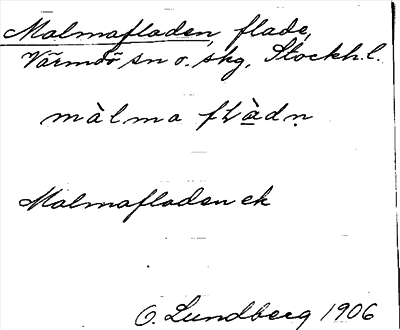 Malmafladen, flade,
Värmdö sn o. skg, Stockh.l.
màlma fLà̲dṇ
Malmafladen ek
O. Lundberg 1906